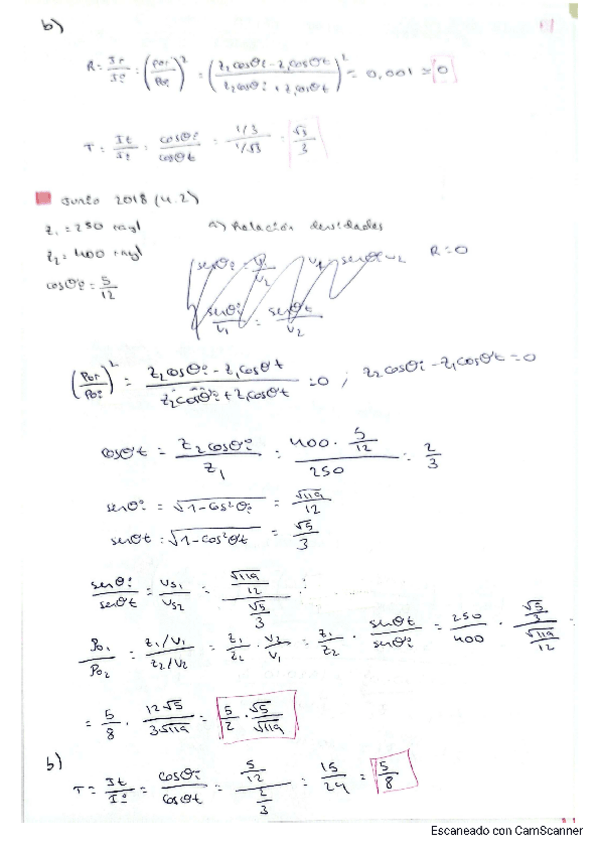 b)
R = Ir/Ii = (Por/Poi)² = ((z₂cosθi - z₁cosθt)/(z₂cosθi + z₁cosθt))² = 0,001 ≈ 0
T = It/Ii = cosθi/cosθt = (1/3)/(1/√3) = √3/3
Junio 2018 (4.2)
z₁ = 250 rayl a) Relación densidades
z₂ = 400 rayl R = 0
cosθi = 5/12
senθi/v₁ = senθt/v₂
(Por/Poi)² = (z₂cosθi - z₁cosθt)/(z₂cosθi + z₁cosθt) = 0 ; z₂cosθi - z₁cosθt = 0
cosθt = z₂cosθi/z₁ = (400 · 5/12)/250 = 2/3
senθi = √(1-cos²θi) = √119/12
senθt = √(1-cos²θt) = √5/3
senθi/senθt = vs₁/vs₂ = (√119/12)/(√5/3)
Po₁/Po₂ = (z₁/v₁)/(z₂/v₂) = z₁/z₂ · v₂/v₁ = z₁/z₂ · senθt/senθi = 250/400 · (√5/3)/(√119/12) =
= 5/8 · 12√5/3√119 = 5/2 · √5/√119
b)
T = It/Ii = cosθi/cosθt = (5/12)/(2/3) = 15/24 = 5/8
Escaneado con CamScanner